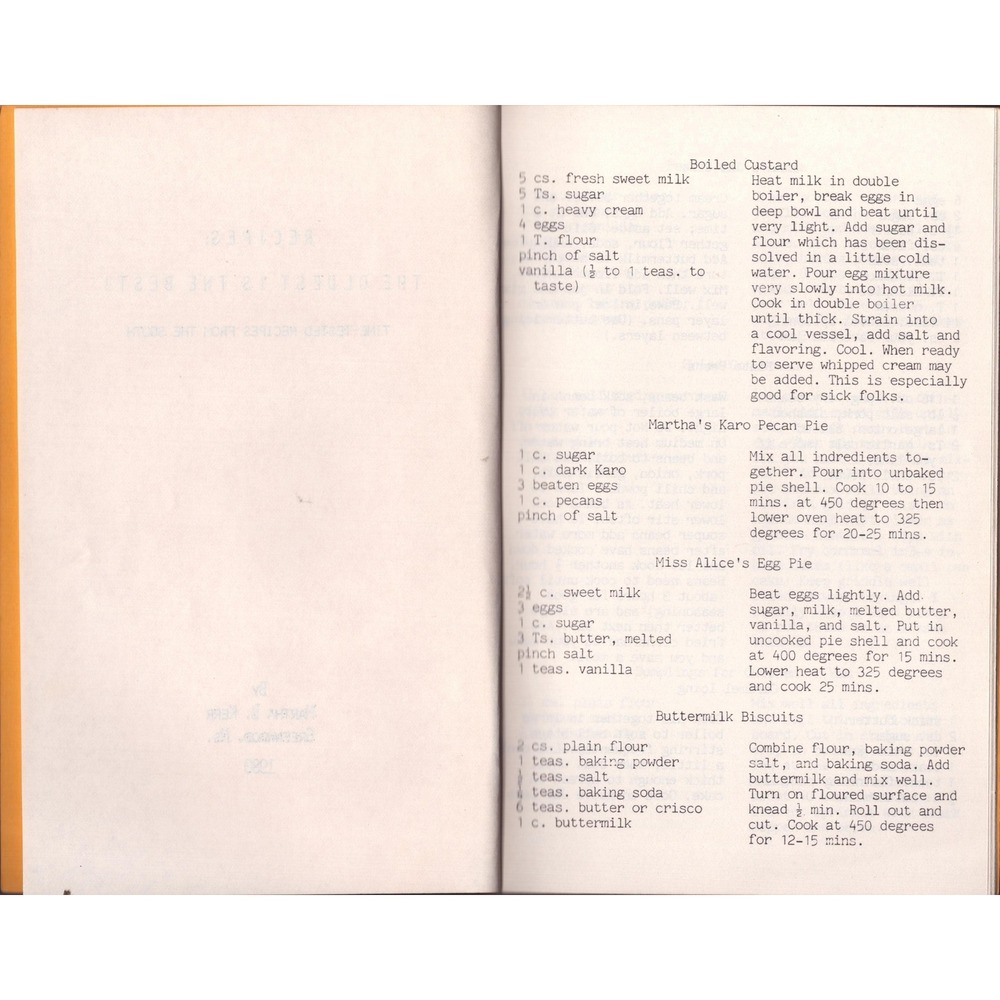 Boiled Custard
5 cs. fresh sweet milk
5 Ts. sugar
1 c. heavy cream
4 eggs
1 T. flour
pinch of salt
vanilla (½ to 1 teas. to
taste)
Heat milk in double
boiler, break eggs in
deep bowl and beat until
very light. Add sugar and
flour which has been dis-
solved in a little cold
water. Pour egg mixture
very slowly into hot milk.
Cook in double boiler
until thick. Strain into
a cool vessel, add salt and
flavoring. Cool. When ready
to serve whipped cream may
be added. This is especially
good for sick folks.
Martha's Karo Pecan Pie
1 c. sugar
1 c. dark Karo
3 beaten eggs
1 c. pecans
pinch of salt
Mix all indredients to-
gether. Pour into unbaked
pie shell. Cook 10 to 15
mins. at 450 degrees then
lower oven heat to 325
degrees for 20-25 mins.
Miss Alice's Egg Pie
2½ c. sweet milk
3 eggs
1 c. sugar
3 Ts. butter, melted
pinch salt
1 teas. vanilla
Beat eggs lightly. Add
sugar, milk, melted butter,
vanilla, and salt. Put in
uncooked pie shell and cook
at 400 degrees for 15 mins.
Lower heat to 325 degrees
and cook 25 mins.
Buttermilk Biscuits
2 cs. plain flour
1 teas. baking powder
teas. salt
teas. baking soda
6 teas. butter or crisco
1 c. buttermilk
Combine flour, baking powder
salt, and baking soda. Add
buttermilk and mix well.
Turn on floured surface and
knead ½ min. Roll out and
cut. Cook at 450 degrees
for 12-15 mins.